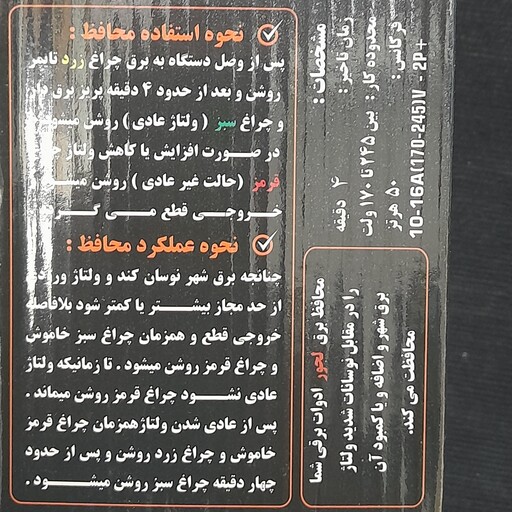 نحوه استفاده محافظ :
پس از وصل دستگاه به برق چراغ زرد تایمر
روشن و بعد از حدود ۴ دقیقه پریز برق دار
و چراغ سبز ( ولتاژ عادی ) روشن میشود
در صورت افزایش یا کاهش ولتاژ
قرمز (حالت غیر عادی ) روشن
خروجی قطع می
نحوه عملکرد محافظ :
چنانچه برق شهر نوسان کند و ولتاژ ورودی
از حد مجاز بیشتر یا کمتر شود بلافاصله
خروجی قطع و همزمان چراغ سبز خاموش
و چراغ قرمز روشن میشود . تا زمانیکه ولتاژ
عادی نشود چراغ قرمز روشن میماند .
پس از عادی شدن ولتاژ همزمان چراغ قرمز
خاموش و چراغ زرد روشن و پس از حدود
چهار دقیقه چراغ سبز روشن میشود .
مشخصات :
زمان تاخیر : ۴ دقیقه
محدوده کار : بین ۲۴۵ تا ۱۷۰ ولت
فرکانس : ۵۰ هرتز
10-16A(170-245)V - 2P+
محافظ برق لجور ادوات برقی شما
را در مقابل نوسانات شدید ولتاژ
برق شهر و اضافه و یا کمبود آن
محافظت می کند.